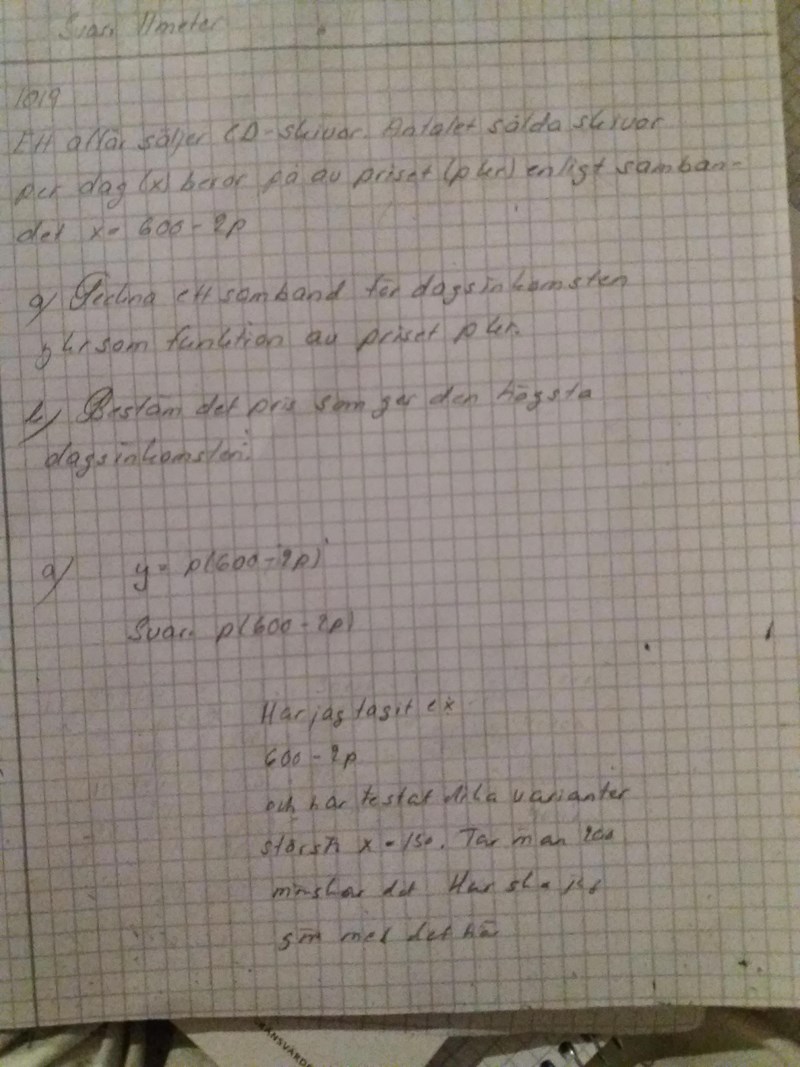 Svar: 11 meter
1019
Ett affär säljer CD-skivor. Antalet sålda skivor
per dag (x) beror på av priset (p kr) enligt samban-
det x = 600 - 2p
a) Teckna ett samband för dagsinkomsten
y kr som funktion av priset p kr.
b) Bestäm det pris som ger den högsta
dagsinkomsten.
a) y = p(600-2p)
Svar: p(600-2p)
Har jag tagit ex
600-2p
och har testat olika varianter
störst x = 150. Tar man 200
minskar det Hur ska jag
med det hä
RÄNSVÄRDE